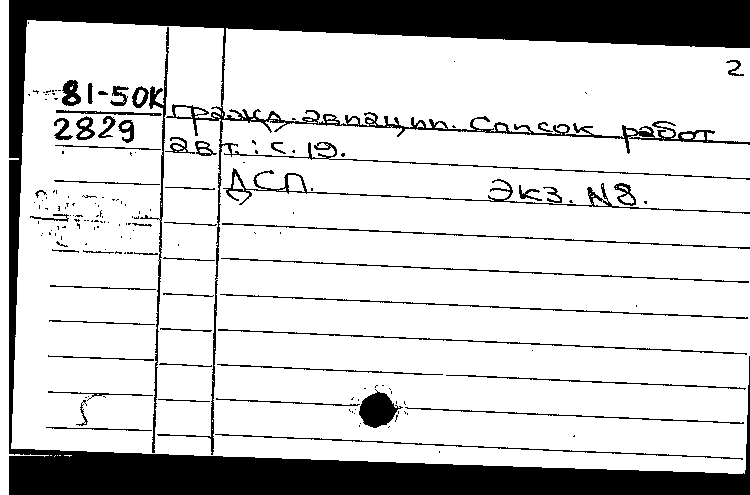 2
81-50К гражд. авиации. Список работ
2829 авт.: с. 19.
ДСП. Экз. №8.